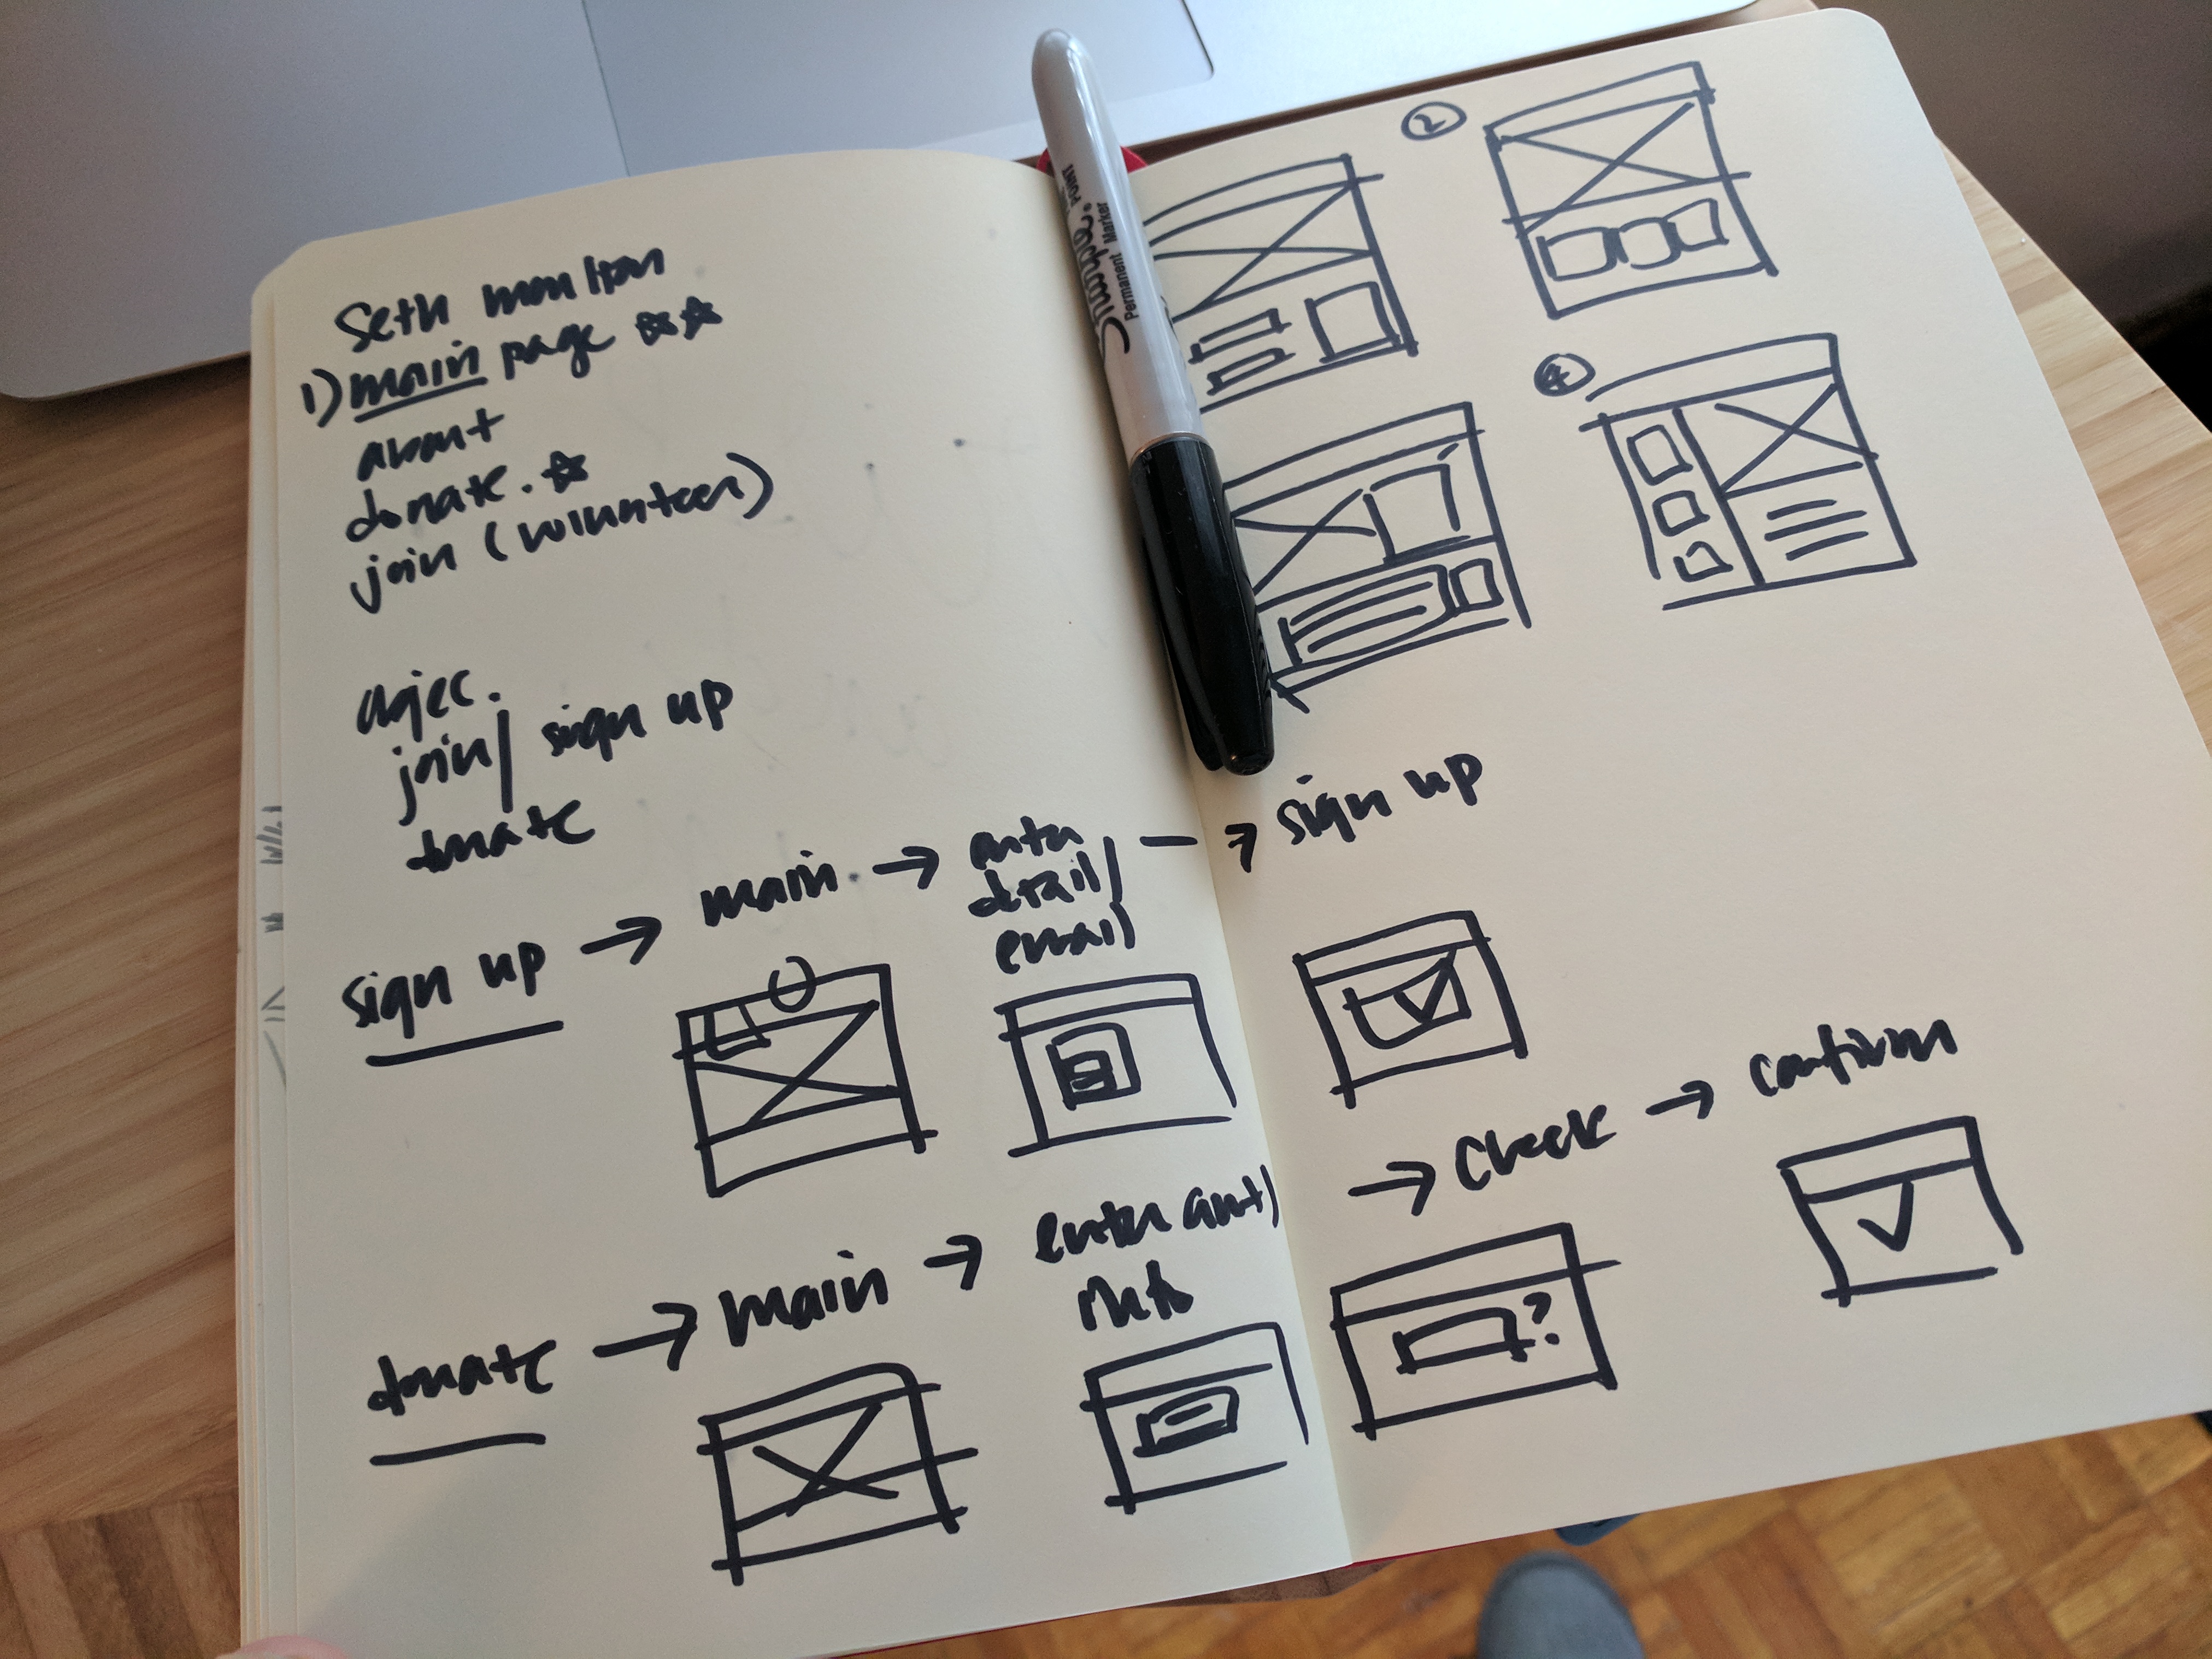 Seth moulton
1) main page ☆☆
about
donate. ☆
join (volunteer)
objec.
join/ sign up
donate
sign up → main → enter detail/ email → sign up
donate → main → enter amt → check → confirm
2
4
Sharpie
POINT
Permanent Marker